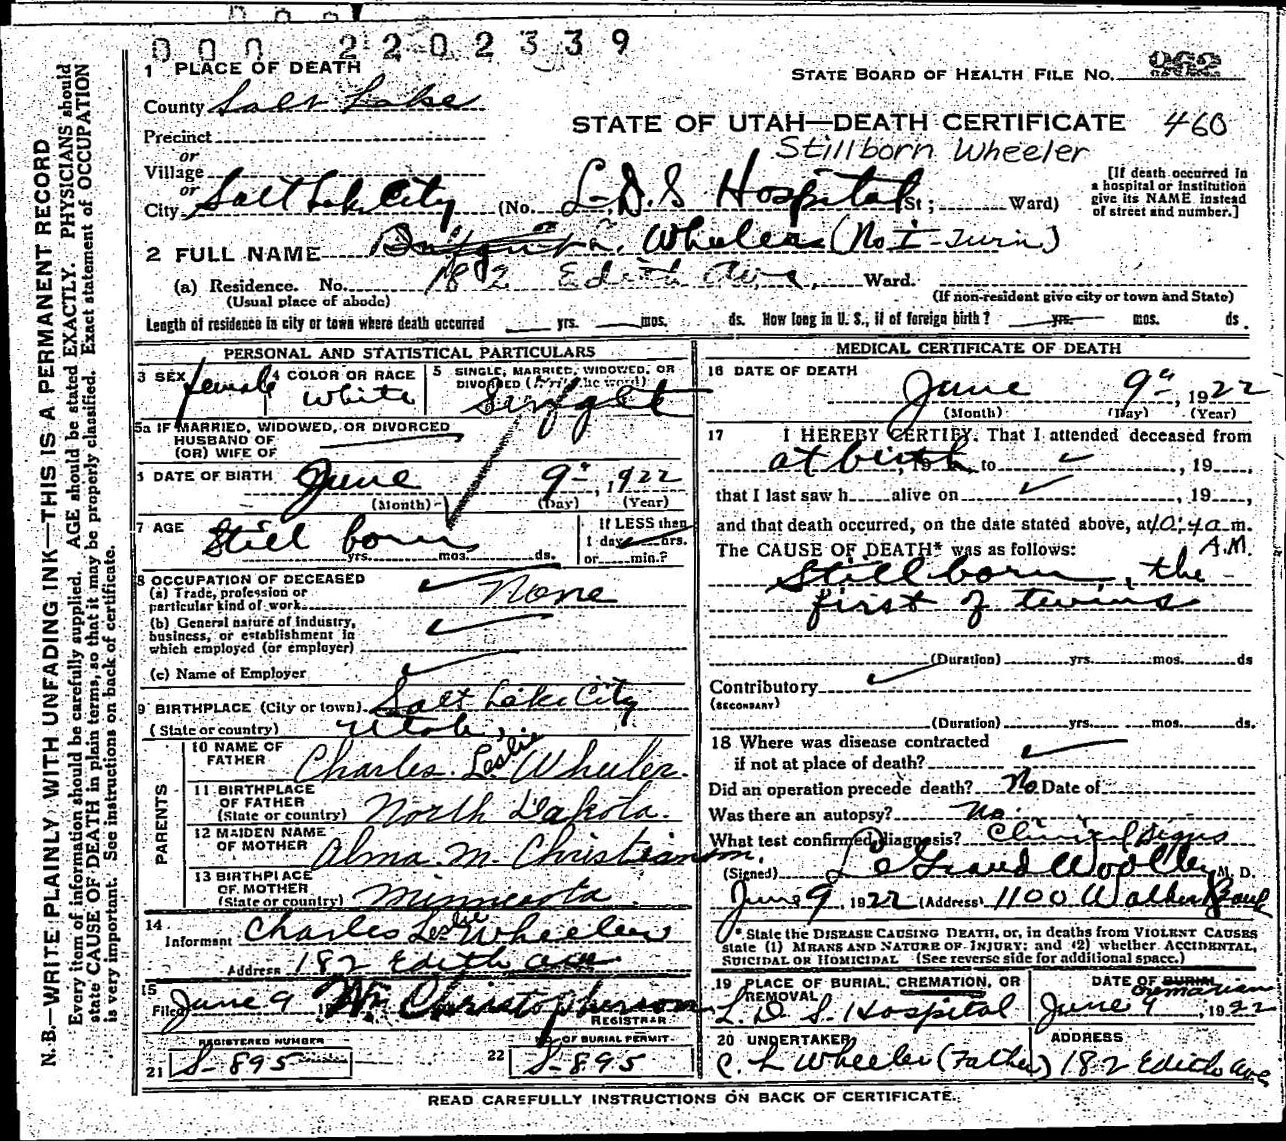 000 2202339
1 PLACE OF DEATH
STATE BOARD OF HEALTH FILE NO.
County Salt Lake
STATE OF UTAH—DEATH CERTIFICATE 460
Precinct
Stillborn Wheeler
or
Village
or
City Salt Lake City (No. L.D.S Hospital St; Ward)
[If death occurred in
a hospital or institution
give its NAME instead
of street and number.]
2 FULL NAME Wheeler (No I-Twin)
(a) Residence. No. 182 Edith Ave. Ward.
(Usual place of abode) (If non-resident give city or town and State)
Length of residence in city or town where death occurred yrs. mos. ds. How long in U. S., if of foreign birth? yrs. mos. ds.
PERSONAL AND STATISTICAL PARTICULARS
3 SEX female 4 COLOR OR RACE white 5 SINGLE, MARRIED, WIDOWED, OR
DIVORCED (Write the word) Single
5a IF MARRIED, WIDOWED, OR DIVORCED
HUSBAND OF
(OR) WIFE OF
6 DATE OF BIRTH June 9", 1922
(Month) (Day) (Year)
7 AGE Still born
yrs. mos. ds.
If LESS then
1 day hrs.
or min.?
8 OCCUPATION OF DECEASED
(a) Trade, profession or
particular kind of work None
(b) General nature of industry,
business, or establishment in
which employed (or employer)
(c) Name of Employer
9 BIRTHPLACE (City or town) Salt Lake City
(State or country) Utah,
PARENTS
10 NAME OF
FATHER Charles Leslie Wheeler.
11 BIRTHPLACE
OF FATHER
(State or country) North Dakota.
12 MAIDEN NAME
OF MOTHER Alma M. Christianson.
13 BIRTHPLACE
OF MOTHER
(State or country) Minnesota.
14
Informant Charles Leslie Wheeler
Address 182 Edith Ave
15
Filed June 9 1 Wm Christopherson
REGISTRAR
REGISTERED NUMBER
21 S-895
NO. OF BURIAL PERMIT
22 S-895
MEDICAL CERTIFICATE OF DEATH
16 DATE OF DEATH
June 9", 1922
(Month) (Day) (Year)
17 I HEREBY CERTIFY, That I attended deceased from
at birth 19 to , 19 ,
that I last saw h alive on , 19 ,
and that death occurred, on the date stated above, at 10:40 a.m.
A.M.
The CAUSE OF DEATH* was as follows:
Stillborn, the -
first of twins
(Duration) yrs. mos. ds
Contributory
(SECONDARY)
(Duration) yrs. mos. ds.
18 Where was disease contracted
if not at place of death?
Did an operation precede death? No Date of
Was there an autopsy? No.
What test confirmed diagnosis? Clinical signs
(Signed) LeGrand Woolley M. D.
June 9, 1922 (Address) 1100 Walker Bank
*State the DISEASE CAUSING DEATH, or, in deaths from VIOLENT CAUSES
state (1) MEANS AND NATURE OF INJURY; and (2) whether ACCIDENTAL,
SUICIDAL OR HOMICIDAL (See reverse side for additional space.)
19 PLACE OF BURIAL, CREMATION, OR
REMOVAL
L. D. S. Hospital
DATE OF BURIAL
Cremation
June 9, 1922
20 UNDERTAKER
C. L Wheeler (Father)
ADDRESS
182 Edith Ave
READ CAREFULLY INSTRUCTIONS ON BACK OF CERTIFICATE.
N. B.—WRITE PLAINLY WITH UNFADING INK—THIS IS A PERMANENT RECORD
Every item of information should be carefully supplied. AGE should be stated EXACTLY. PHYSICIANS should
state CAUSE OF DEATH in plain terms, so that it may be properly classified. Exact statement of OCCUPATION
is very important. See instructions on back of certificate.